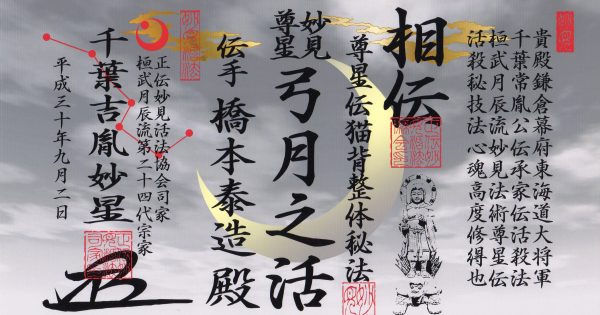 貴殿鎌倉幕府東海道大将軍
千葉常胤公伝承家伝活殺法
桓武月辰流妙見法術尊星伝
活殺秘技法心魂高度修得也
相伝
尊星伝猫背整体秘法
妙見
尊星
弓月之活
伝手 橋本泰造 殿
正伝妙見活法協会司家
桓武月辰流第二十四代宗家
千葉吉胤妙星
平成三十年九月二日